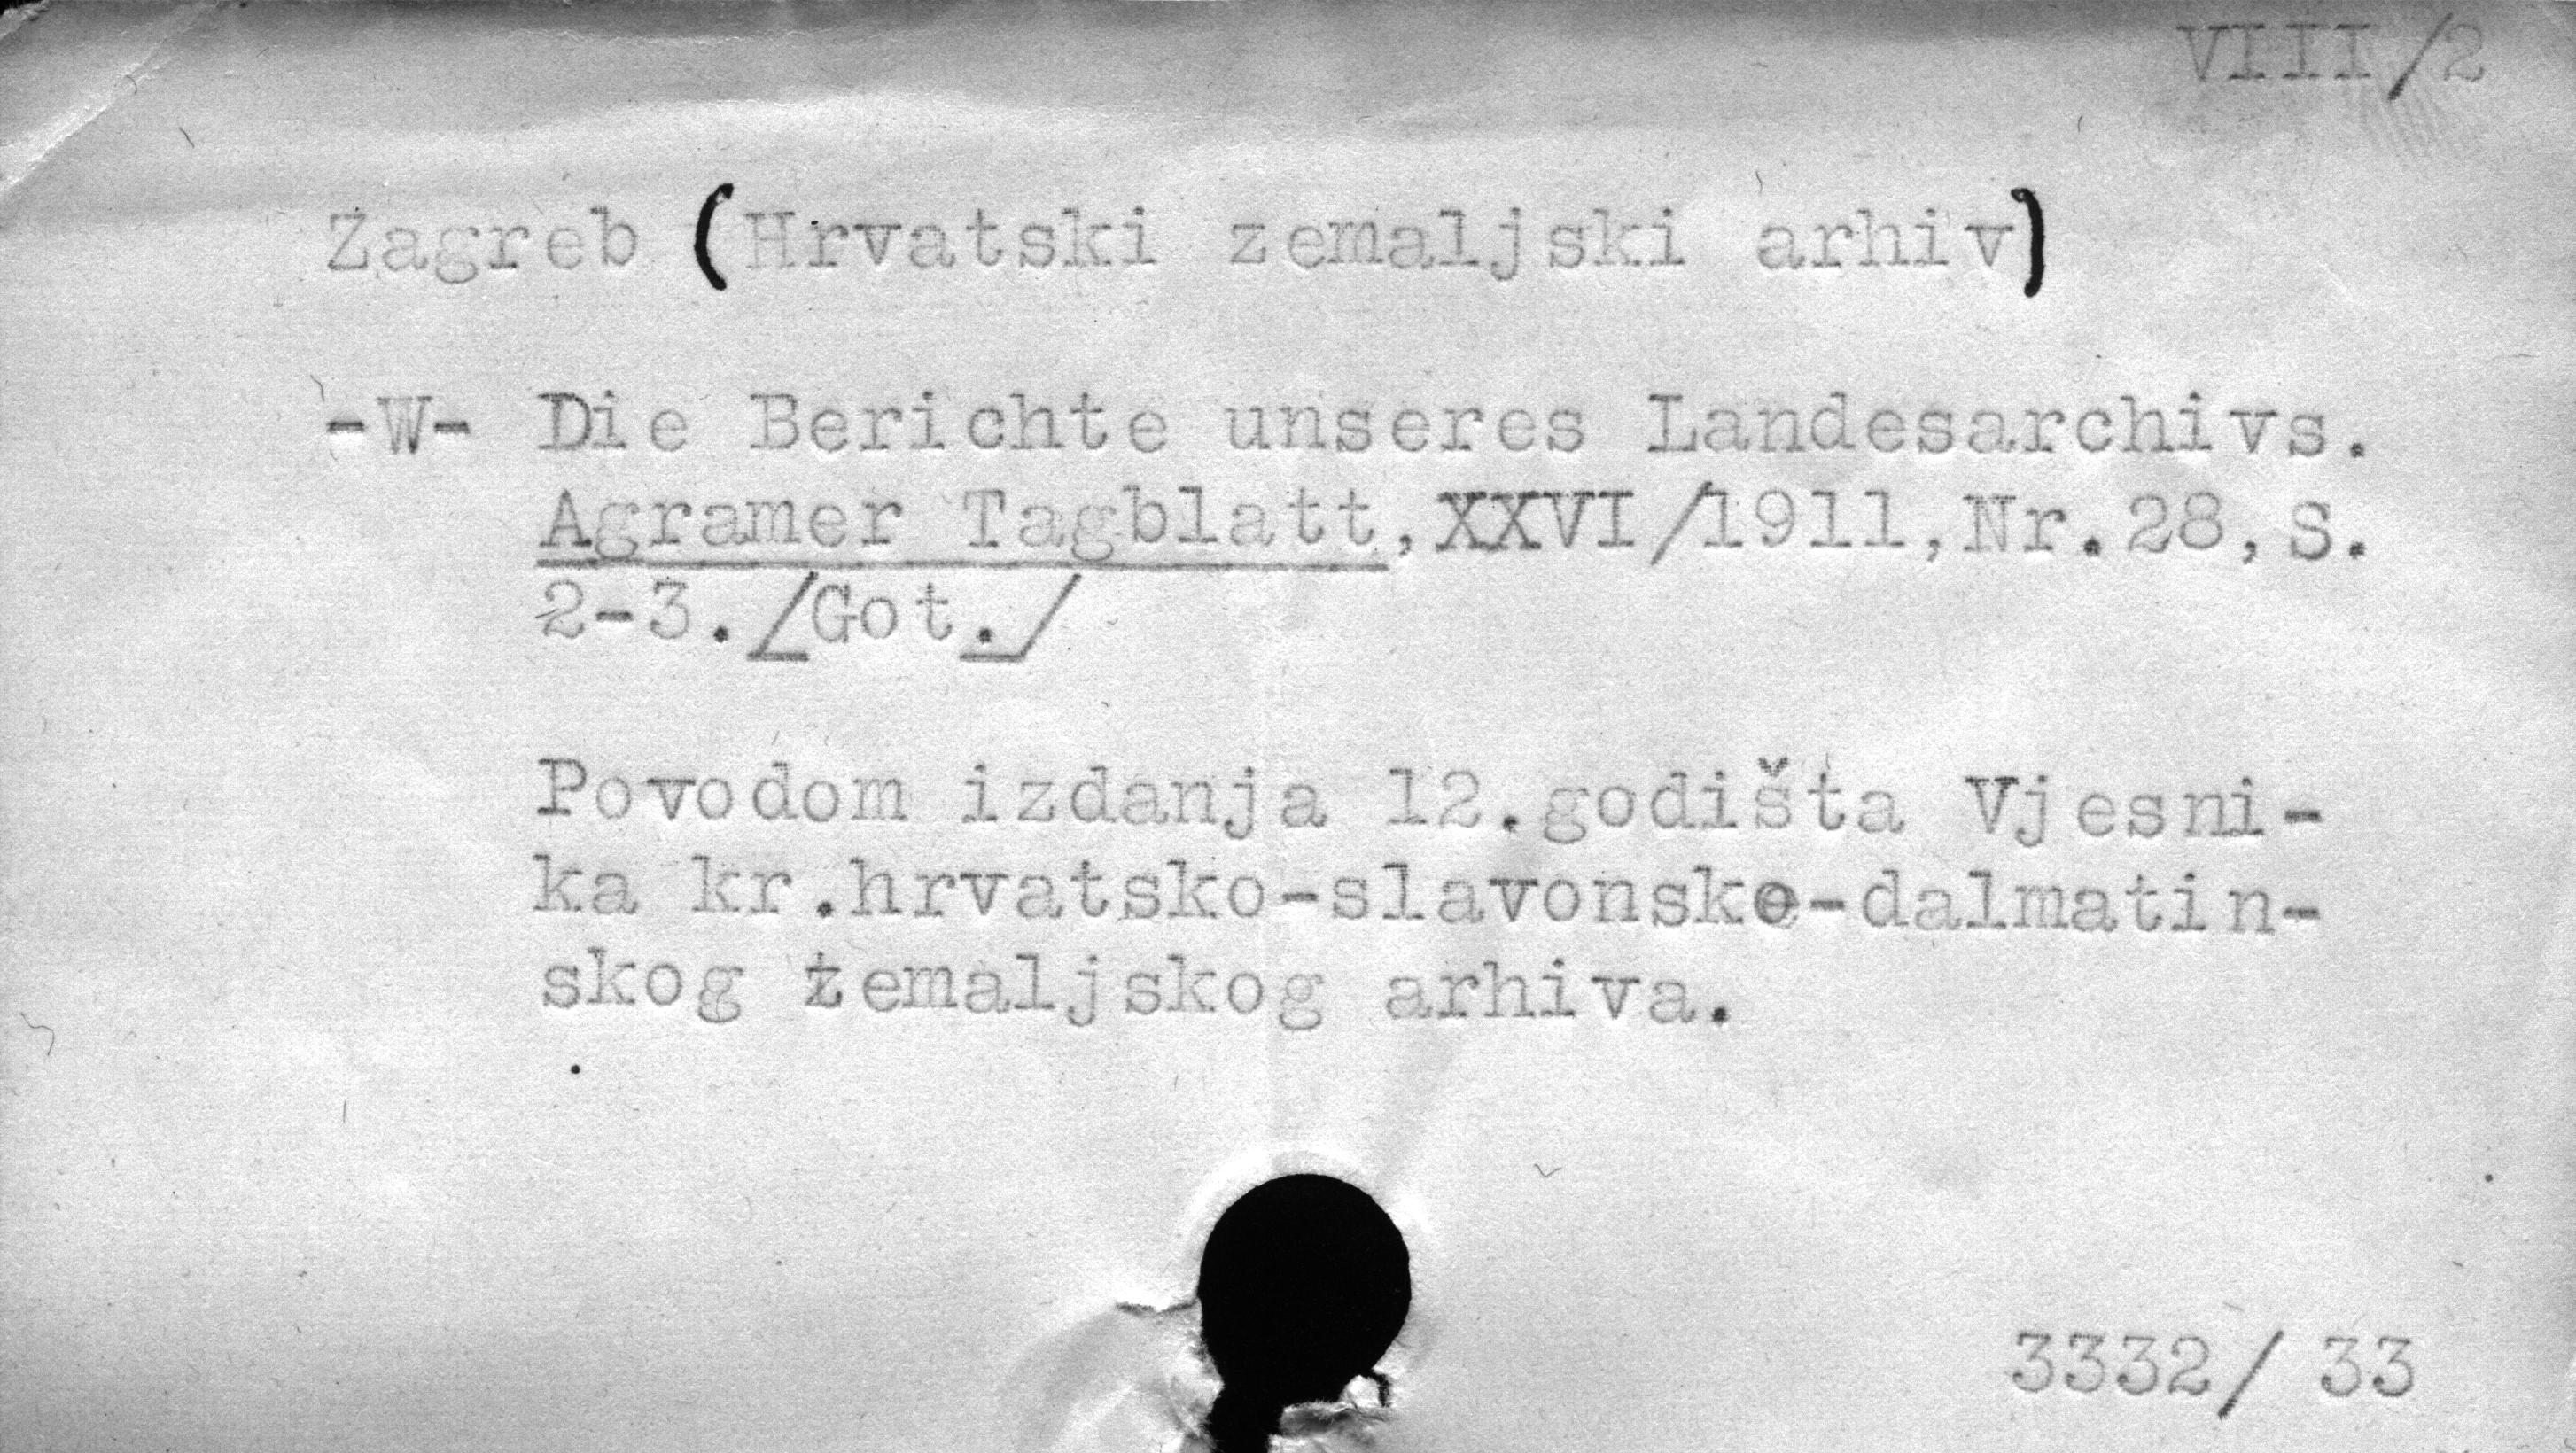 VIII/2
Zagreb (Hrvatski zemaljski arhiv)
-W- Die Berichte unseres Landesarchivs.
Agramer Tagblatt,XXVI/1911,Nr.28,S.
2-3./Got./
Povodom izdanja 12.godišta Vjesni-
ka kr.hrvatsko-slavonsko-dalmatin-
skog zemaljskog arhiva.
3332/ 33